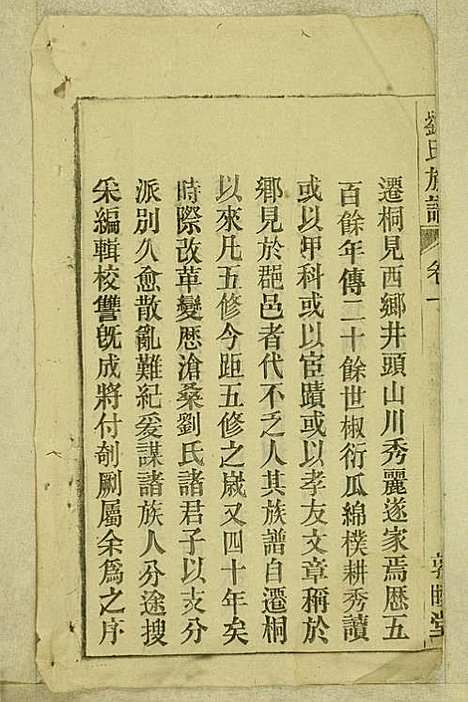 劉氏族譜
卷一
敦睦堂
遷桐見西鄉井頭山川秀麗遂家焉歷五
百餘年傳二十餘世椒衍瓜綿樸耕秀讀
或以甲科或以宦蹟或以孝友文章稱於
鄉見於郡邑者代不乏人其族譜自遷桐
以來凡五修今距五修之歲又四十年矣
時際改革變歷滄桑劉氏諸君子以支分
派別久愈散亂難紀爰謀諸族人分途搜
采編輯校讐旣成將付剞劂屬余爲之序